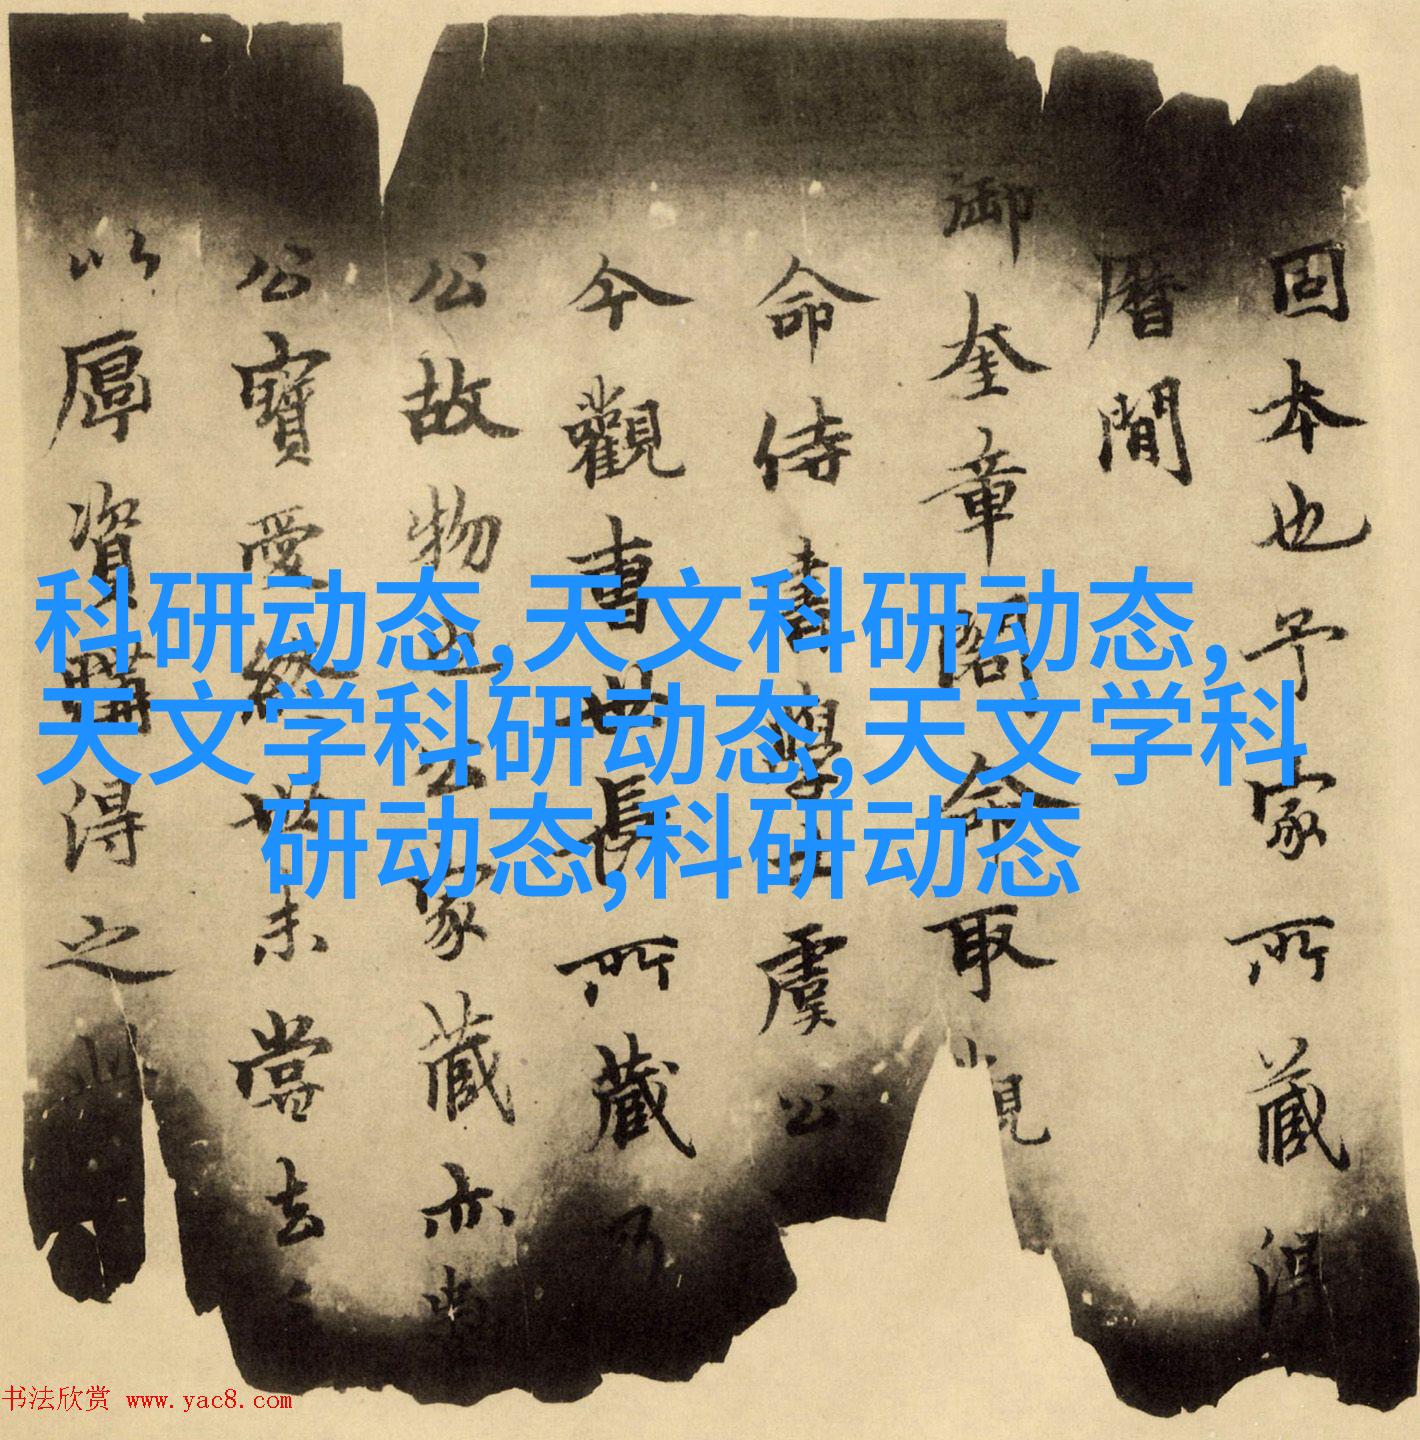 固本也予家所藏得
曆間
御奎章閣命取 觀
命侍書學士虞公
今觀書世長所藏乃
公故物也公家藏亦尚
公寶愛終世未嘗去
以厚資購得之
科研动态,天文科研动态,
天文学科研动态,天文学科
研动态,科研动态
书法欣赏 www.yac8.com